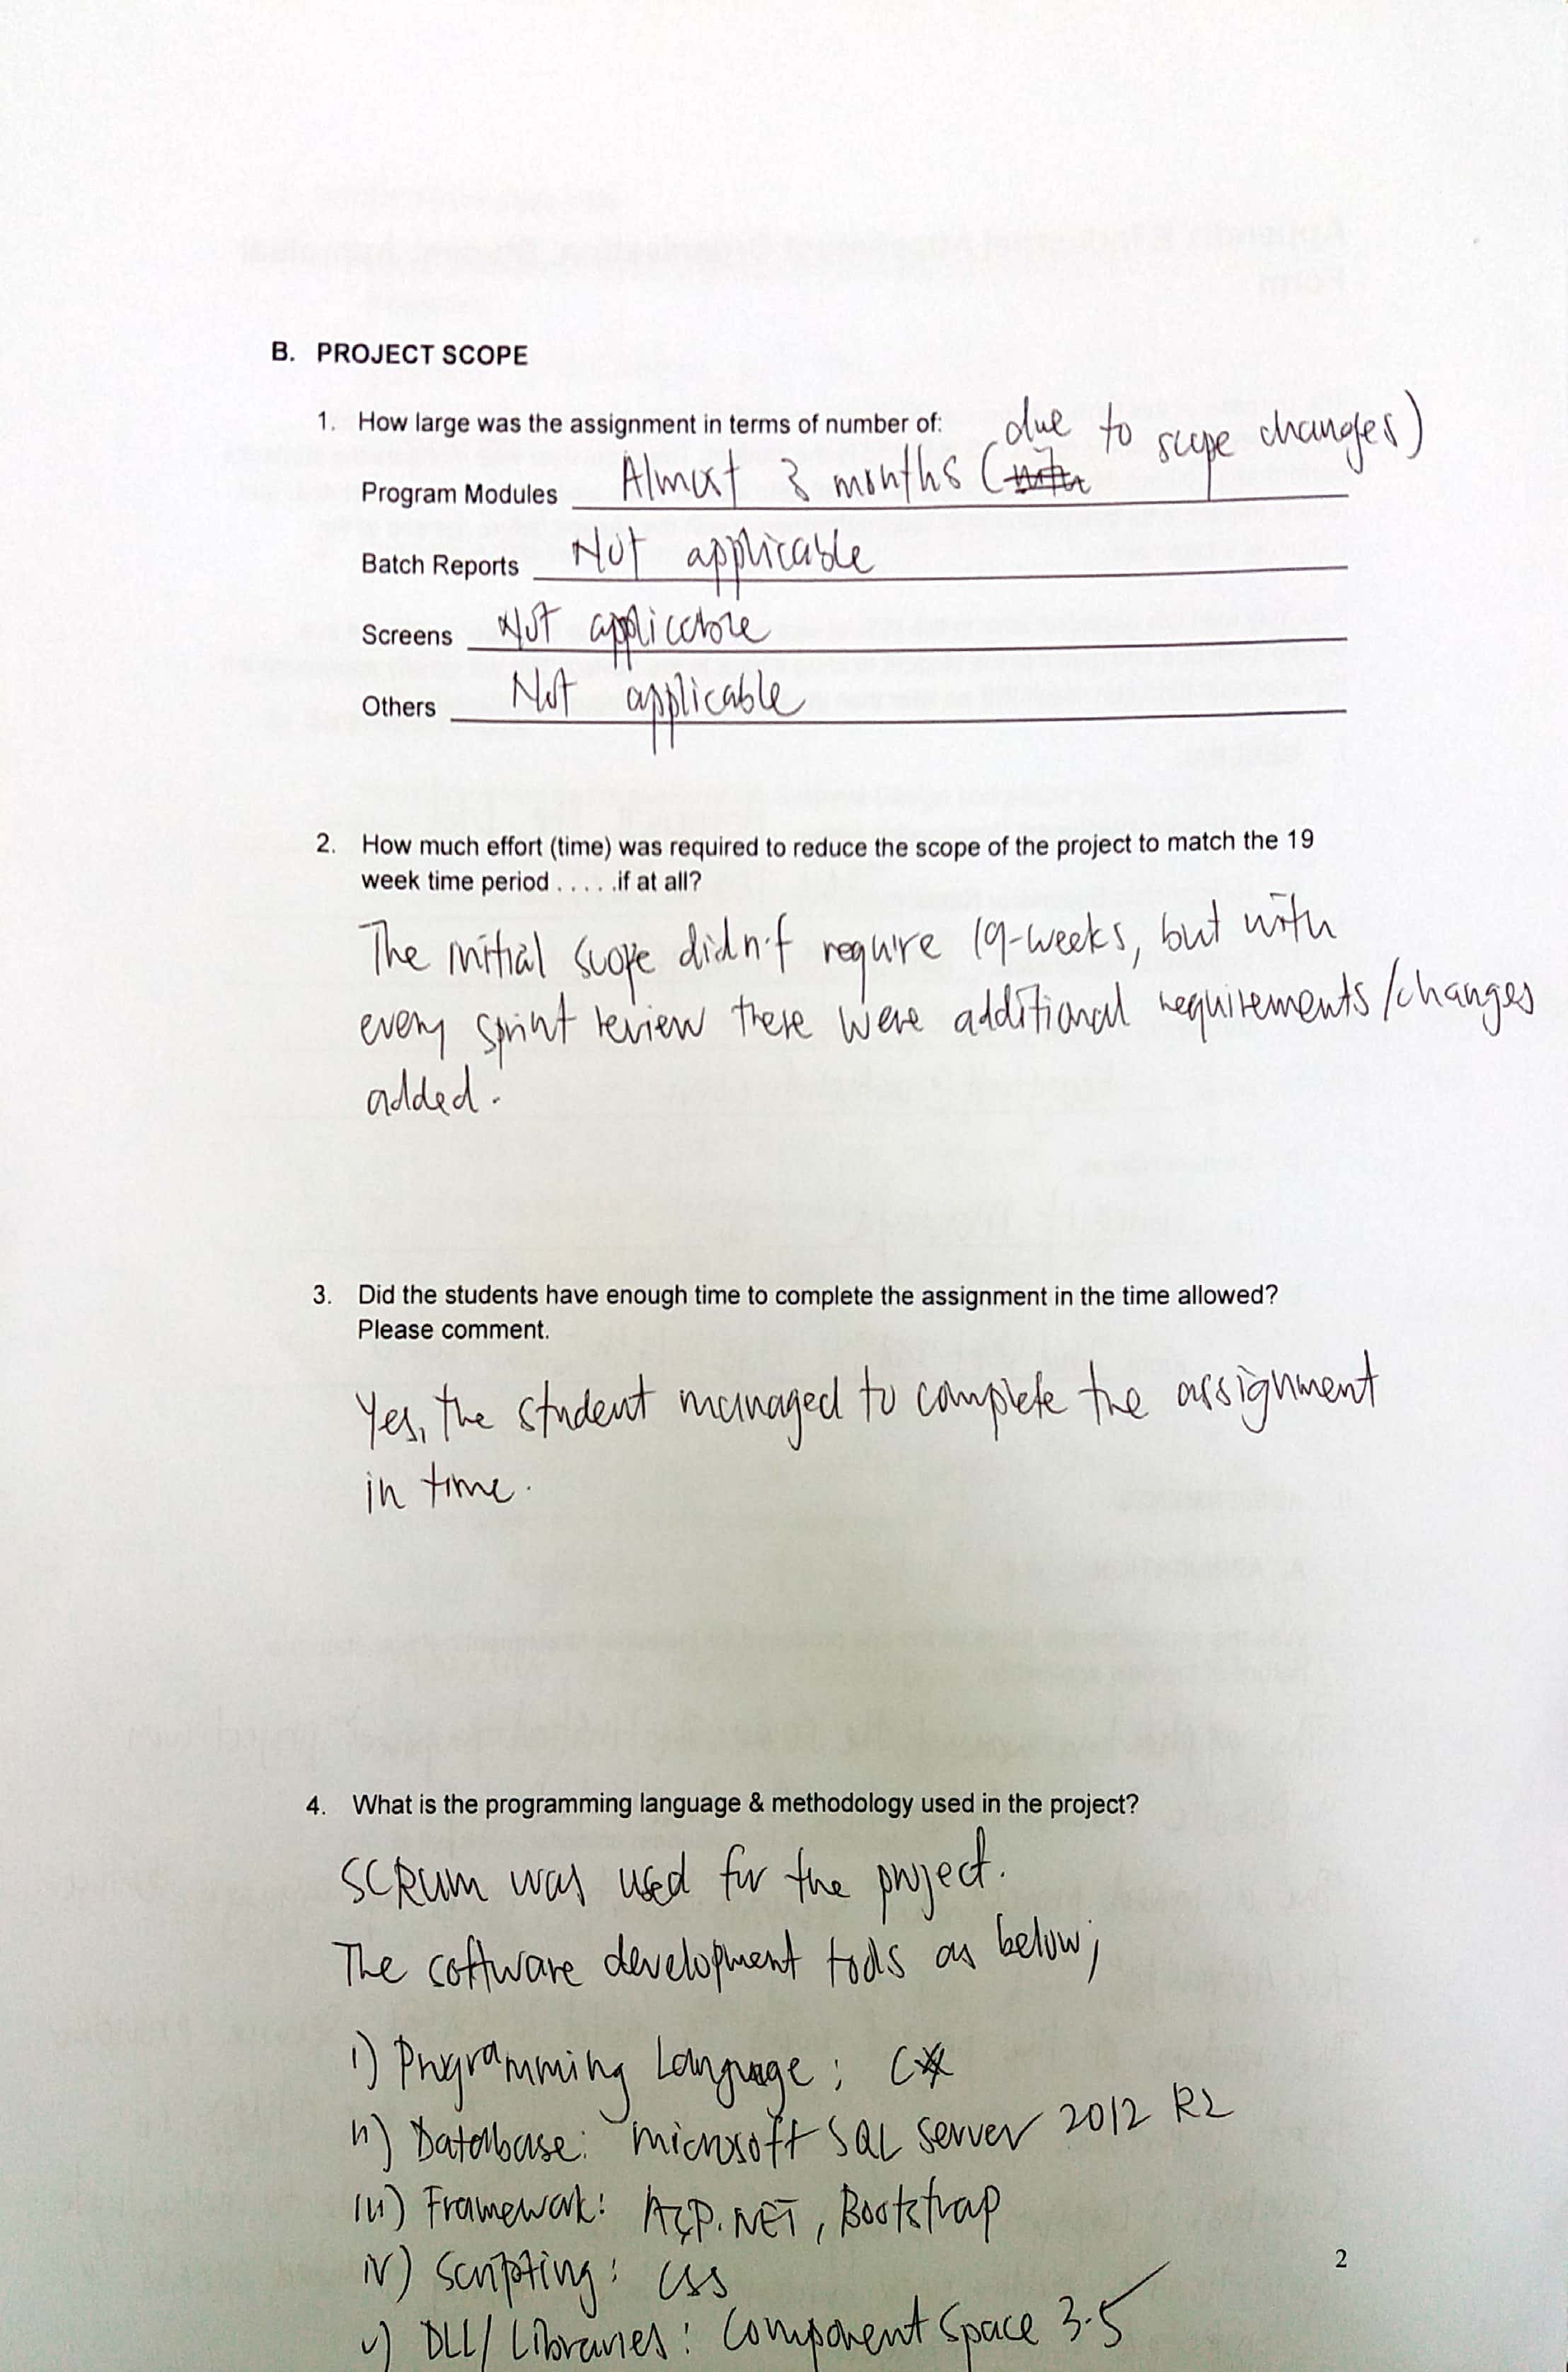 B. PROJECT SCOPE
1. How large was the assignment in terms of number of:
Program Modules Almost 3 months (due to scope changes)
Batch Reports Not applicable
Screens Not applicable
Others Not applicable
2. How much effort (time) was required to reduce the scope of the project to match the 19
week time period . . . . .if at all?
The initial scope didn't require 19-weeks, but with
every sprint review there were additional requirements/changes
added.
3. Did the students have enough time to complete the assignment in the time allowed?
Please comment.
Yes, the student managed to complete the assignment
in time.
4. What is the programming language & methodology used in the project?
SCRUM was used for the project.
The software development tools as below;
i) Programming Language; C#
ii) Database: Microsoft SQL Server 2012 R2
iii) Framework: ASP.NET, Bootstrap
iv) Scripting: CSS
v) DLL/Libraries: Component Space 3.5
2